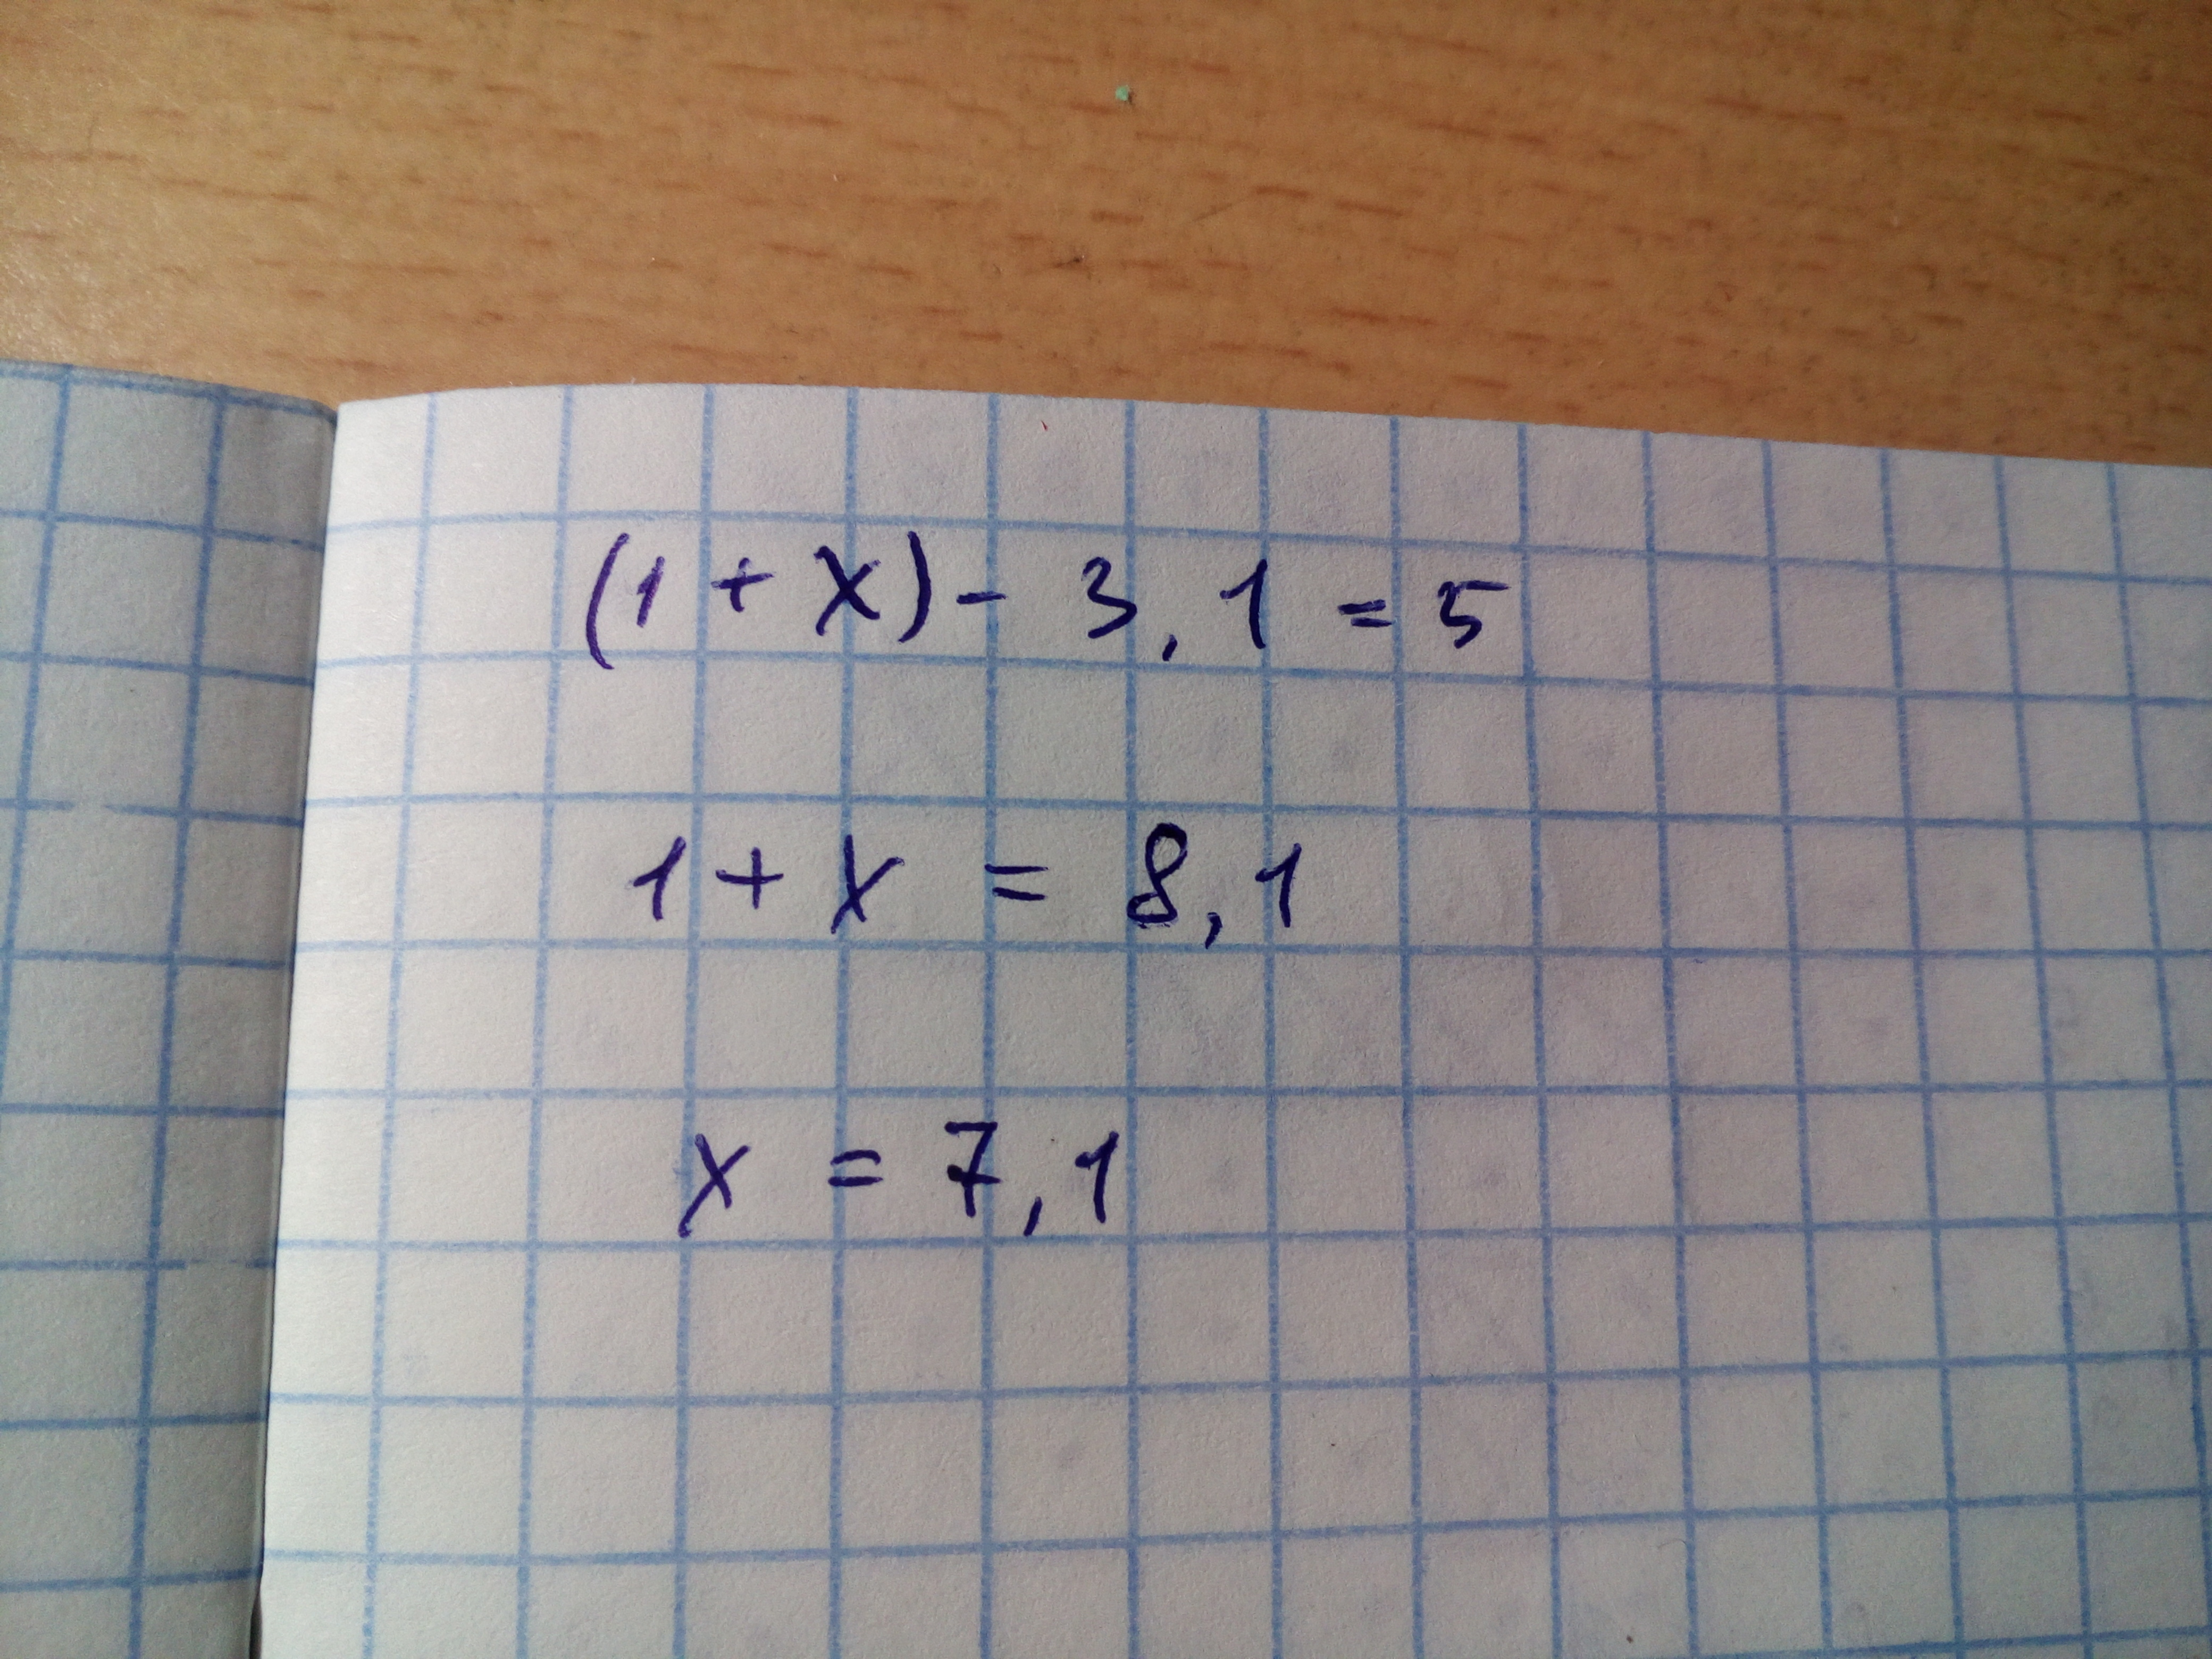 (1 + x) - 3,1 = 5
1 + x = 8,1
x = 7,1